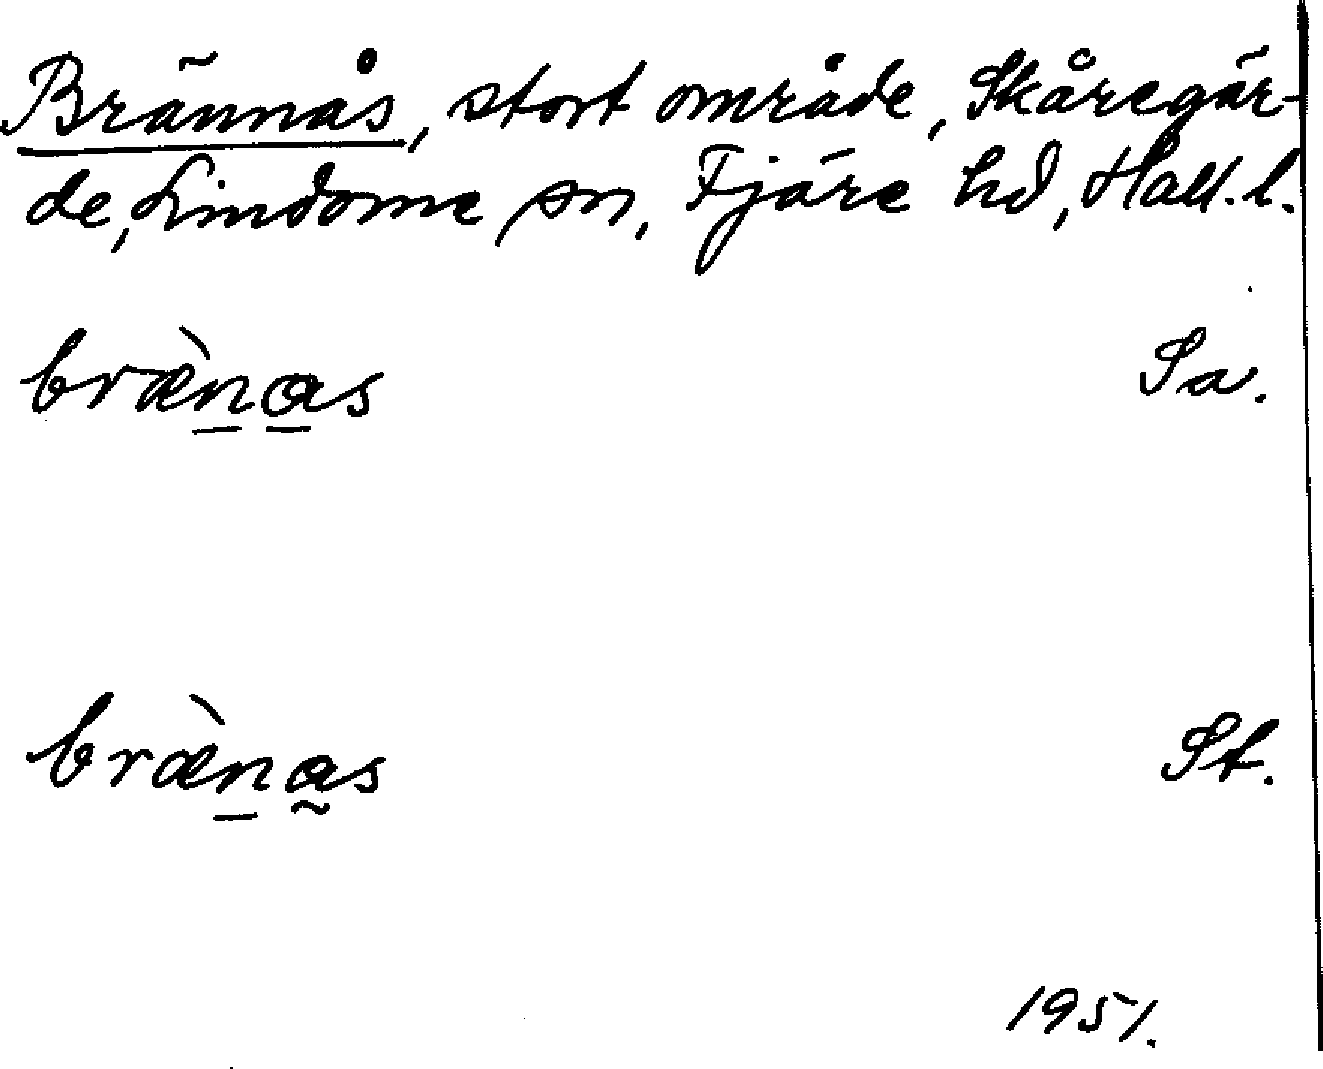 Brännås, stort område, Skåregär-
de, Lindome sn, Fjäre hd, Hall. l.
bræ̀n̲a̲s Sa.
bræ̀n̲a̰s St.
1951.